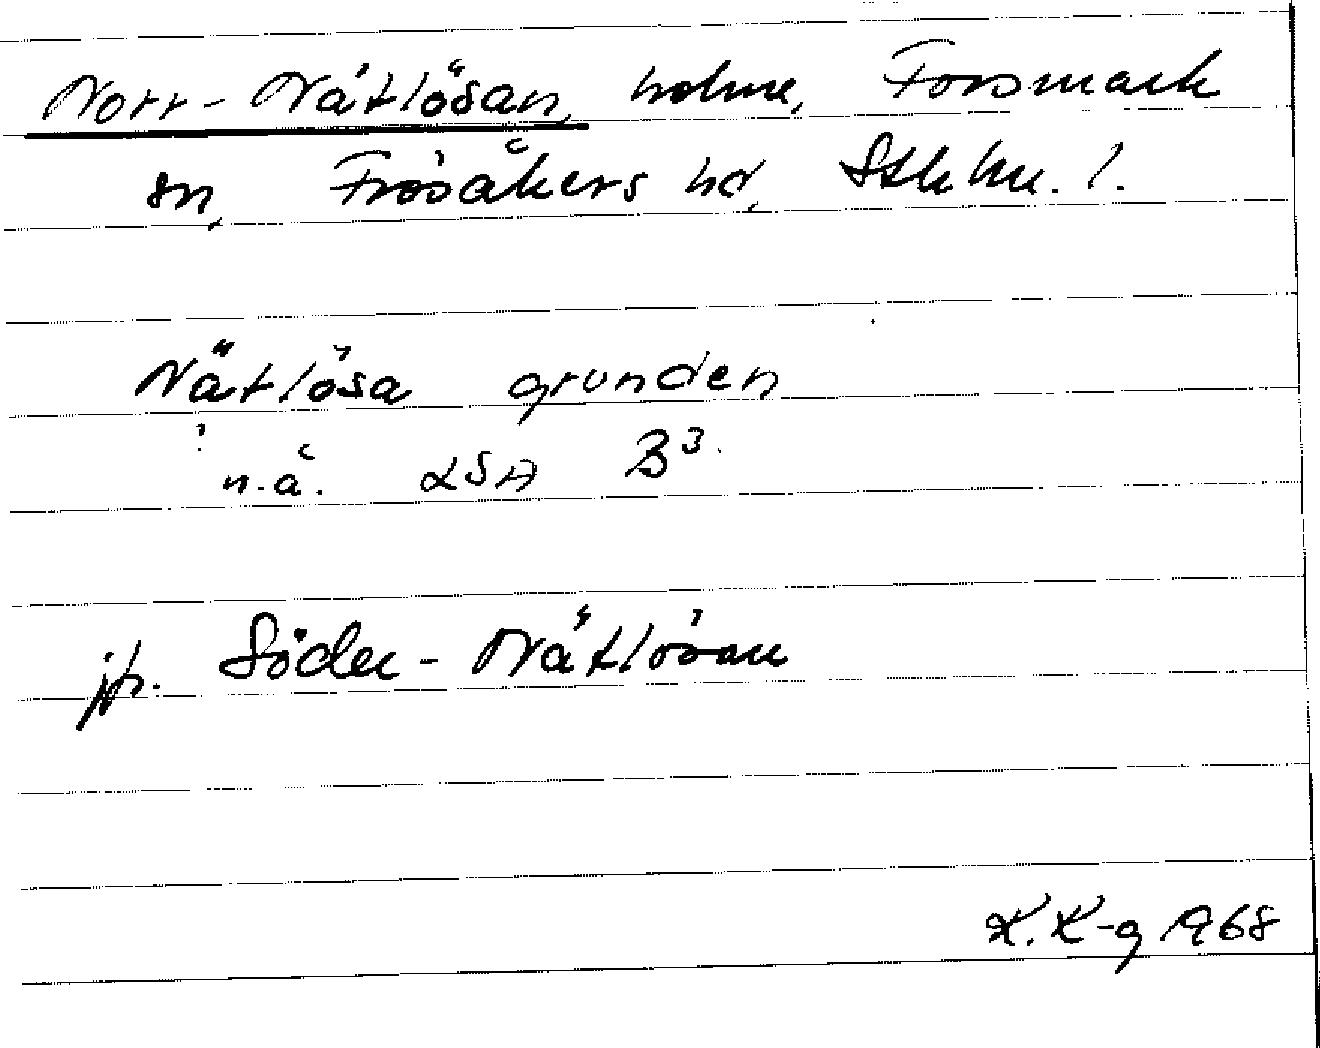 Norr-Nätlösan, holme, Forsmark
sn, Frösåkers hd, Sthlms l.
Nätlösa grunden
n.å. LSA B3.
jfr. Söder-Nätlösan
K. K-g 1968